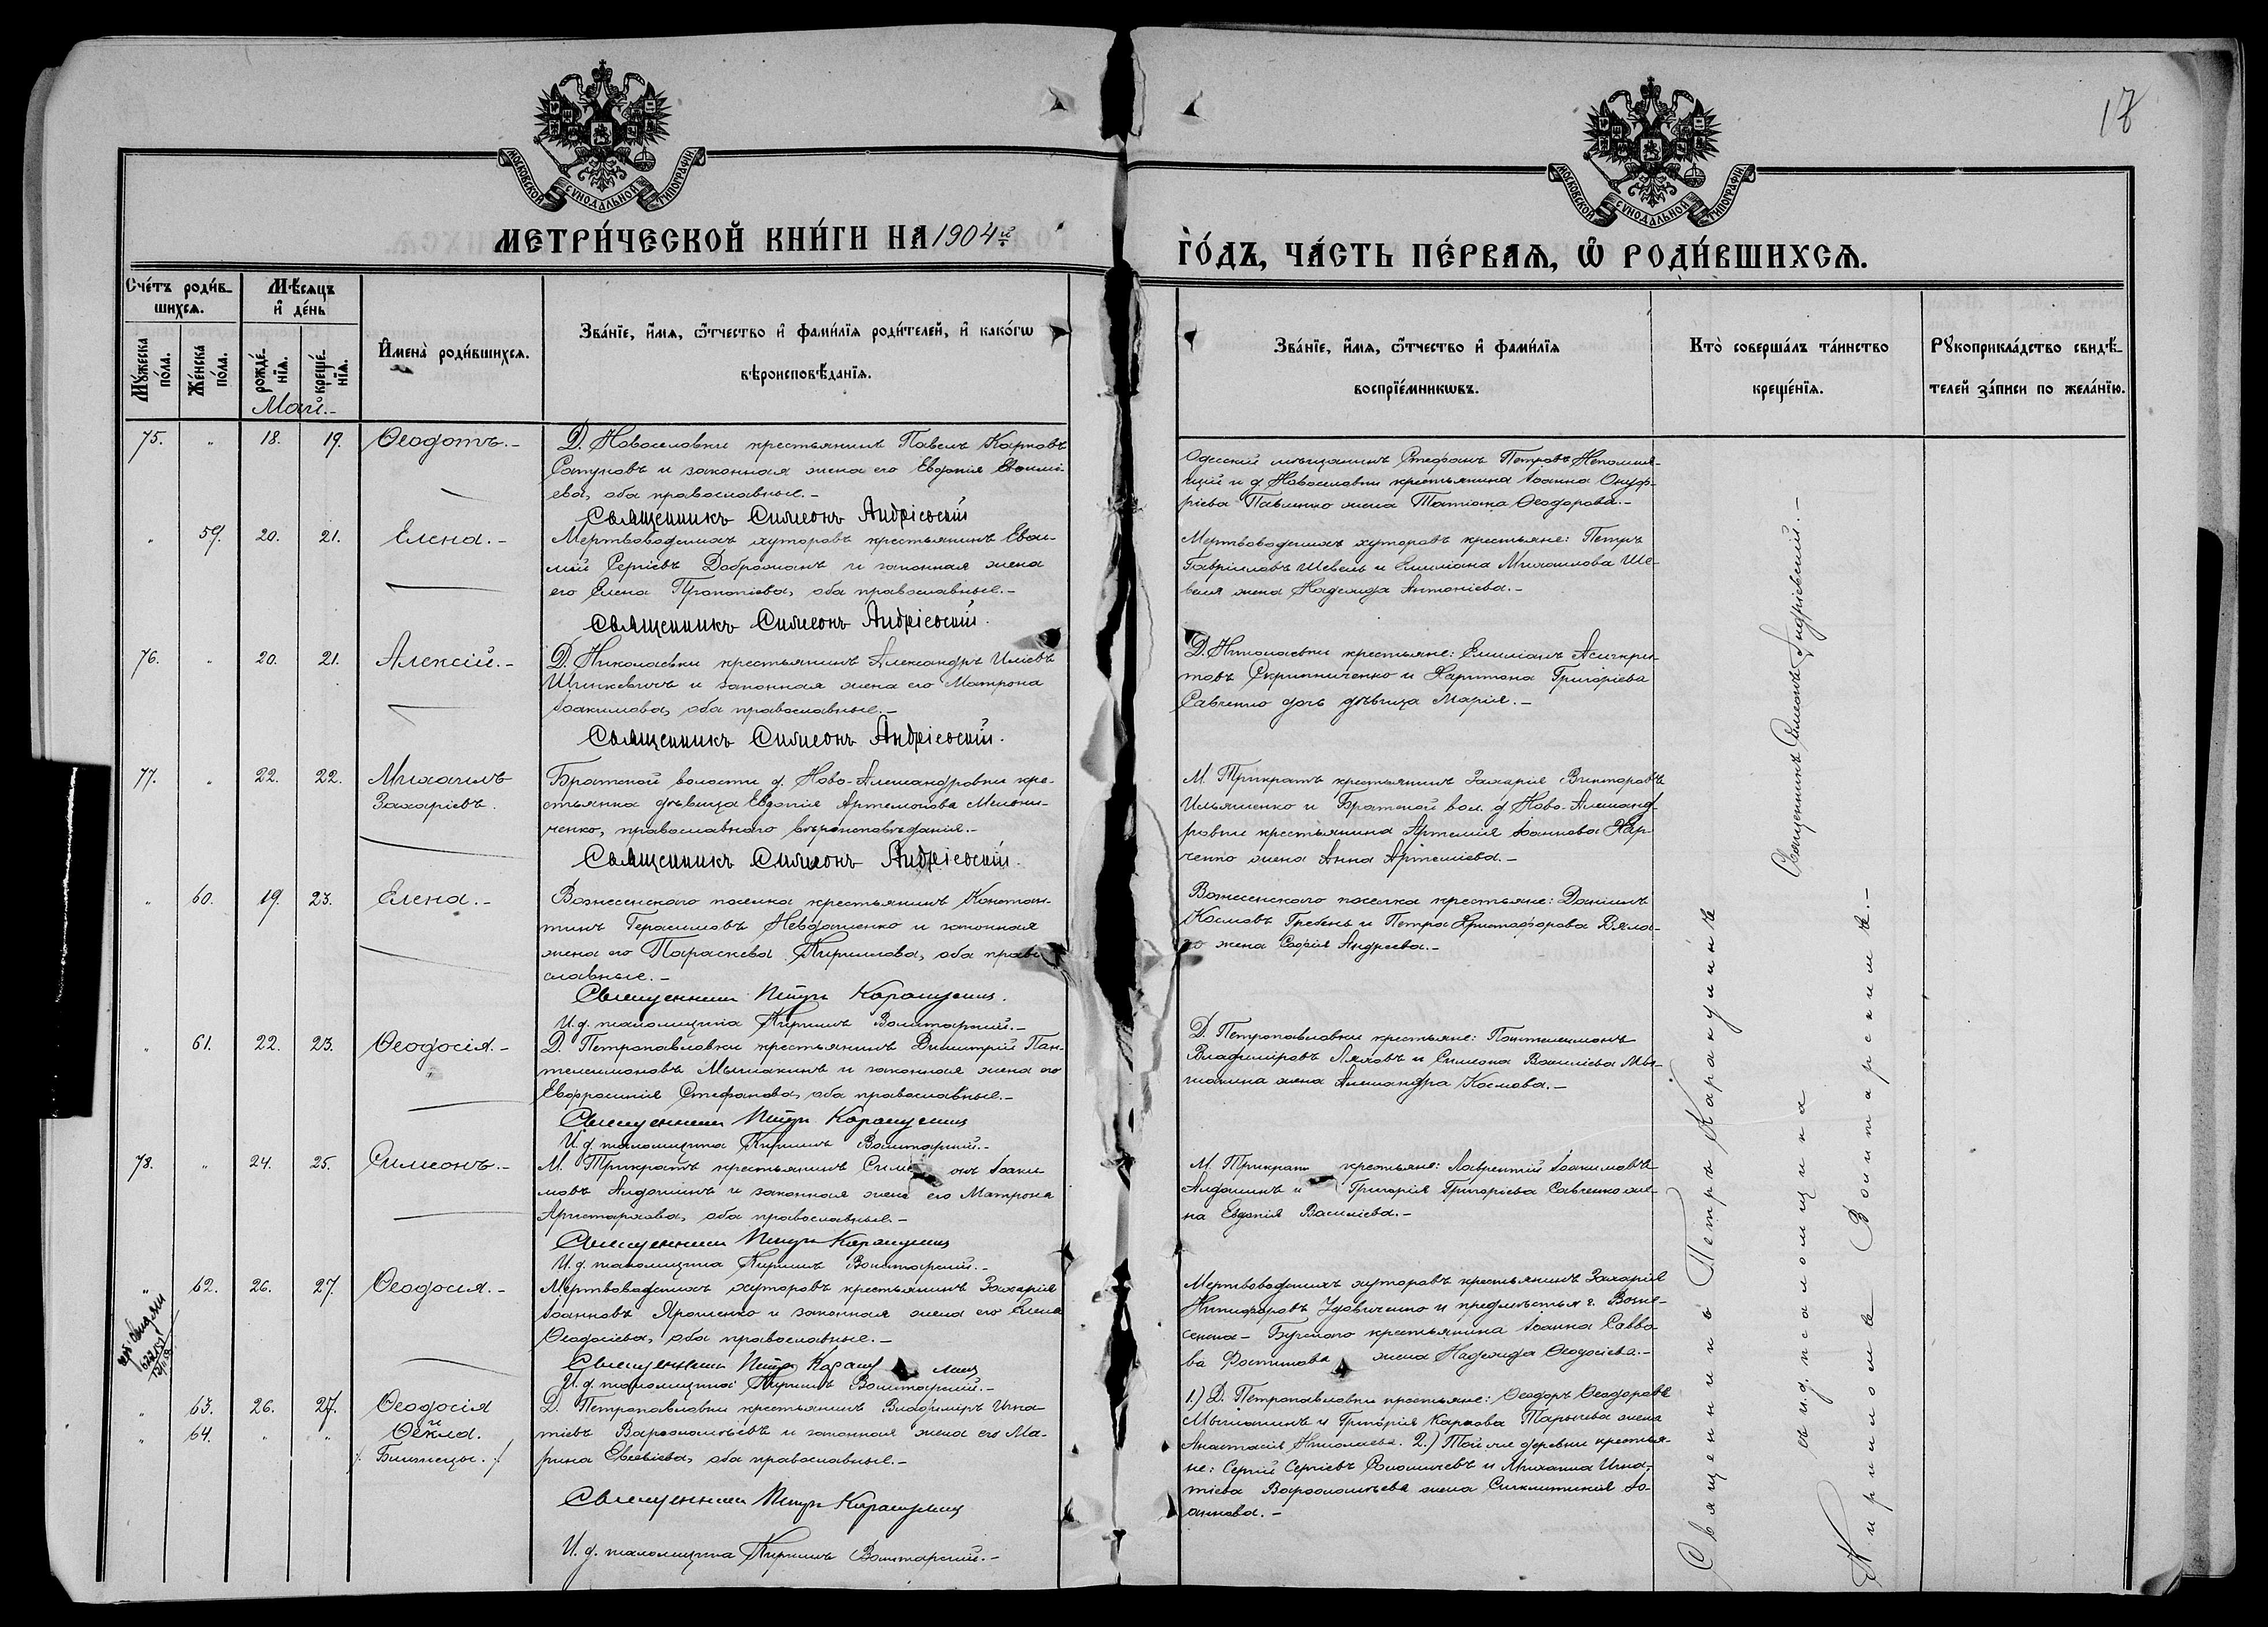 18
МОСКОВСКОЙ СѴНОДАЛЬНОЙ ТИПОГРАФІИ
МОСКОВСКОЙ СѴНОДАЛЬНОЙ ТИПОГРАФІИ
МЕТРИ́ЧЕСКОЙ КНИ́ГИ НА 1904й
ГО́ДЪ, ЧА́СТЬ ПЕ́РВАѦ, Ѡ РОДИ́ВШИХСѦ.
Сче́тъ роди́в-
шихсѧ.
Мѣ́сѧцъ
и҆ де́нь
Мꙋ́жеска
по́ла.
Же́нска
по́ла.
рожде́-
нїѧ.
креще́-
нїѧ.
И҆мена̀ роди́вшихсѧ.
Зва́нїе, и҆́мѧ, ѻ҆́тчество и҆ фами́лїѧ роди́телей, и҆ како́гѡ
вѣроисповѣ́данїѧ.
Зва́нїе, и҆́мѧ, ѻ҆́тчество и҆ фами́лїѧ
воспрїе́мникѡвъ.
Кто̀ соверша́лъ та́инство
креще́нїѧ.
Рꙋкоприкла́дство свидѣ́-
телей за́писи по жела́нїю.
Май.-
75. " 18. 19. Ѳеодотъ.-
Д. Новоселовки крестьянинъ Павелъ Карповъ
Сатуновъ и законная жена его Евдокія Евѳимі-
ева, оба православные.-
Священникъ Симеонъ Андріевскій
Одесскій мѣщанинъ Стефанъ Петровъ Непомня-
щій и д. Новоселовки крестьянина Іоанна Онуф-
ріева Павленко жена Татіана Ѳеодорова.-
" 59. 20. 21. Елена.-
Мертвоводскихъ хуторовъ крестьянинъ Евѳи-
мій Сергіевъ Доброжанъ и законная жена
его Елена Прокопіева, оба православные.-
Священникъ Симеонъ Андріевскій.
Мертвоводскихъ хуторовъ крестьяне: Петръ
Гавріиловъ Шевель и Емиліана Михаилова Ше-
веля жена Надежда Антоніева.-
76. " 20. 21. Алексій.-
Д. Николаевки крестьянинъ Александръ Иліевъ
Шинкевичъ и законная жена его Матрона
Іоакимова, оба православные.-
Священникъ Симеонъ Андріевскій.
Д. Николаевки крестьяне: Емиліанъ Асигкри-
товъ Скрипниченко и Харитона Григоріева
Савченко дочь дѣвица Марія.-
77. " 22. 22. Михаилъ
Захаріевъ.
Братской волости д. Ново-Александровки кре-
стьянка дѣвица Евдокія Артемонова
ченко, православного вѣроисповѣданія.-
Священникъ Симеонъ Андріевскій.
М. Трикратъ крестьянинъ Захарія Викторовъ
Ильяшенко и Братской вол. д. Ново-Александ-
ровки крестьянина Артемія Іоаннова Хар-
ченко жена Анна Артеміева.-
" 60. 19. 23. Елена.-
Вознесенского поселка крестьянинъ Констан-
тинъ Герасимовъ Невдащенко и законная
жена его Параскева Кириллова, оба право
славные.-
Священникъ Петръ Каракулинъ.
И.д. псаломщика Кириллъ Войтарскій.-
Вознесенского поселка крестьяне: Даніилъ
Космовъ Гребень и Петра Христофорова Вяла-
го жена Софія Андреева.-
" 61. 22. 23. Ѳеодосія.-
Д. Петропавловки крестьянинъ Димитрій Пан-
телеимоновъ Мышакинъ и законная жена его
Евфросинія Стефанова, оба православные.-
Священникъ Петръ Каракулинъ
И.д. псаломщика Кириллъ Войтарскій.-
Д. Петропавловки крестьяне: Пантелеимонъ
Владиміровъ Ляховъ и Симеона Василіева Мы-
шакина жена Александра Космова.-
78. " 24. 25. Симеонъ.-
М. Трикратъ крестьянинъ Симеонъ Іоаки-
мовъ Алдошинъ и законная жена его Матрона
Аристархова, оба православные.-
Священникъ Петръ Каракулинъ
И.д. псаломщика Кириллъ Войтарскій.-
М. Трикратъ крестьяне: Лаврентій Іоакимовъ
Алдошинъ и Григорія Григоріева Савченко же-
на Евдокія Василіева.-
" 62. 26. 27. Ѳеодосія.-
Мертвоводскихъ хуторовъ крестьянинъ Захарія
Іоанновъ Ярошенко и законная жена его Елена
Ѳеодосіева, оба православные.-
Священникъ Петръ Каракулинъ
И.д. псаломщика Кириллъ Войтарскій.-
Мертвоводскихъ хуторовъ крестьянинъ Захарія
Никифоровъ Удовиченко и предмѣстья г. Возне-
сенска- Бугского крестьянина Іоанна Савво-
ва жена Надежда Ѳеодосіева.-
" 63. 26. 27. Ѳеодосія
и
" 64. " " Ѳекла.
/. Близнецы. /.
Д. Петропавловки крестьянинъ Владиміръ Игна-
тіевъ Варѳоломѣевъ и законная жена его Ма-
рина Евсевіева, оба православные.-
Священникъ Петръ Каракулинъ
И.д. псаломщика Кириллъ Войтарскій.-
1.) Д. Петропавловки крестьяне: Ѳеодоръ Ѳеодоровъ
Мышакинъ и Григорія Карпова жена
Анастасія Николаева. 2.) Той же деревни крестья-
не: Сергій Сергіевъ и Михаила Игна-
тіева Варѳоломѣева жена Синклитикія Іо-
аннова.-
Священникъ Симеонъ Андріевскій.-
Священникъ Петръ Каракулинъ
съ и.д. псаломщика
Кирилломъ Войтарскимъ.-